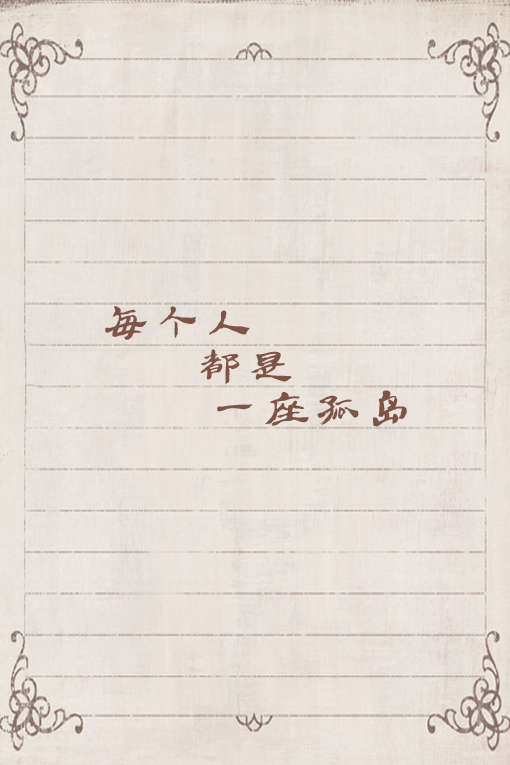 每个人
都是
一座孤岛